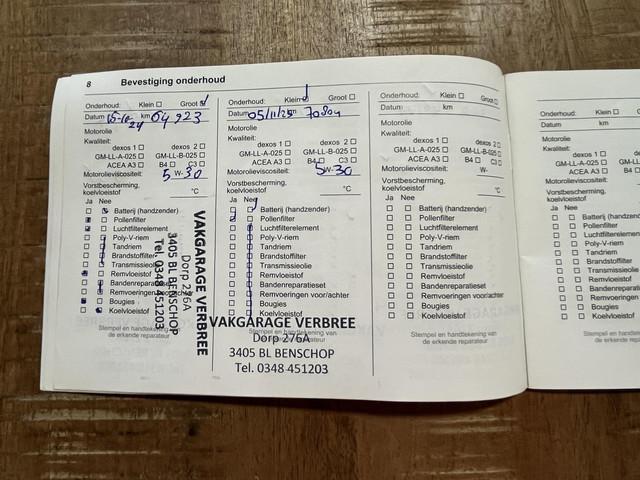 8 Bevestiging onderhoud
Onderhoud: Klein Groot
Datum km 64923
Motorolie
Kwaliteit:
dexos 1 dexos 2
GM-LL-A-025 GM-LL-B-025
ACEA A3 B4 C3
Motorolieviscositeit: 5 W-30
Vorstbescherming, koelvloeistof °C
Ja Nee
Batterij (handzender)
Pollenfilter
Luchtfilterelement
Poly-V-riem
Tandriem
Brandstoffilter
Transmissieolie
Remvloeistof
Bandenreparatieset
Remvoeringen
Bougies
Koelvloeistof
Stempel en handtekening van
de erkende reparateur
VAKGARAGE VERBREE
Dorp 276A
3405 BL BENSCHOP
Tel. 0348 451203
Onderhoud: Klein Groot
Datum 05/11/25 km 70804
Motorolie
Kwaliteit:
dexos 1 dexos 2
GM-LL-A-025 GM-LL-B-025
ACEA A3 B4 C3
Motorolieviscositeit: 5W-30
Vorstbescherming,
koelvloeistof °C
Ja Nee
Batterij (handzender)
Pollenfilter
Luchtfilterelement
Poly-V-riem
Tandriem
Brandstoffilter
Transmissieolie
Remvloeistof
Bandenreparatieset
Remvoeringen voor/achter
Bougies
Koelvloeistof
VAKGARAGE VERBREE
Stempel en handtekening van
Dorp 276A
de erkende reparateur
3405 BL BENSCHOP
Tel. 0348 451203
Onderhoud: Klein Groot
Datum km
Motorolie
Kwaliteit:
dexos 1 dexos 2
GM-LL-A-025 GM-LL-B-025
ACEA A3 B4 C3
Motorolieviscositeit: W-
Vorstbescherming,
koelvloeistof °C
Ja Nee
Batterij (handzender)
Pollenfilter
Luchtfilterelement
Poly-V-riem
Tandriem
Brandstoffilter
Transmissieolie
Remvloeistof
Bandenreparatieset
Remvoeringen voor/achter
Bougies
Koelvloeistof
Stempel en handtekening van
de erkende reparateur
Onderhoud: Klein
Datum km
Motorolie
Kwaliteit:
dexos 1
GM-LL-A-025
ACEA A3
Motorolieviscositeit:
Vorstbescherming,
koelvloeistof
Ja Nee
Batterij (handzend
Pollenfilter
Luchtfilterelement
Poly-V-riem
Tandriem
Brandstoffilter
Transmissieolie
Remvloeistof
Bandenreparati
Remvoeringen
Bougies
Koelvloeistof
Stempel en handteken
de erkende repara